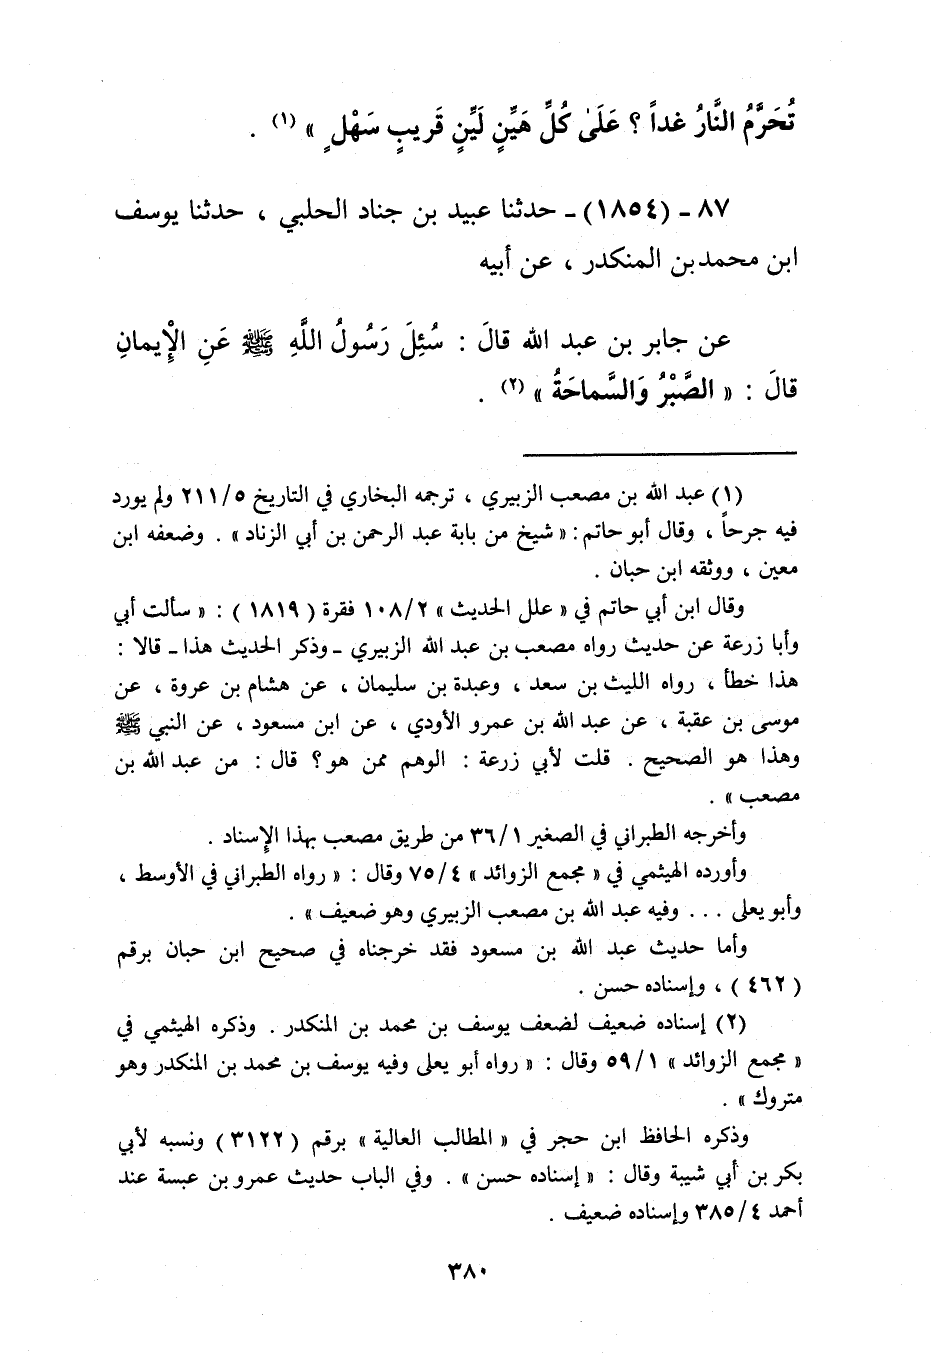 تُحَرَّمُ النَّارُ غداً ؟ عَلَىٰ كُلِّ هَيِّنٍ لَيِّنٍ قَرِيبٍ سَهْلٍ » (١) .
٨٧ - (١٨٥٤) - حدثنا عبيد بن جناد الحلبي ، حدثنا يوسف
ابن محمد بن المنكدر ، عن أبيه
عن جابر بن عبد الله قالَ : سُئِلَ رَسُولُ اللَّهِ ﷺ عَنِ الْإِيمانِ
قالَ : « الصَّبْرُ وَالسَّماحَةُ » (٢) .
(١) عبد الله بن مصعب الزبيري ، ترجمه البخاري في التاريخ ٢١١/٥ ولم يورد
فيه جرحاً ، وقال أبو حاتم : « شيخ من بابة عبد الرحمن بن أبي الزناد » . وضعفه ابن
معين ، ووثقه ابن حبان .
وقال ابن أبي حاتم في « علل الحديث » ١٠٨/٢ فقرة ( ١٨١٩ ) : « سألت أبي
وأبا زرعة عن حديث رواه مصعب بن عبد الله الزبيري - وذكر الحديث هذا - قالا :
هذا خطأ ، رواه الليث بن سعد ، وعبدة بن سليمان ، عن هشام بن عروة ، عن
موسى بن عقبة ، عن عبد الله بن عمرو الأودي ، عن ابن مسعود ، عن النبي ﷺ
وهذا هو الصحيح . قلت لأبي زرعة : الوهم ممن هو ؟ قال : من عبد الله بن
مصعب » .
وأخرجه الطبراني في الصغير ٣٦/١ من طريق مصعب بهذا الإِسناد .
وأورده الهيثمي في « مجمع الزوائد » ٧٥/٤ وقال : « رواه الطبراني في الأوسط ،
وأبو يعلى ... وفيه عبد الله بن مصعب الزبيري وهو ضعيف » .
وأما حديث عبد الله بن مسعود فقد خرجناه في صحيح ابن حبان برقم
( ٤٦٢ ) ، وإسناده حسن .
(٢) إسناده ضعيف لضعف يوسف بن محمد بن المنكدر . وذكره الهيثمي في
« مجمع الزوائد » ٥٩/١ وقال : « رواه أبو يعلى وفيه يوسف بن محمد بن المنكدر وهو
متروك » .
وذكره الحافظ ابن حجر في « المطالب العالية » برقم ( ٣١٢٢ ) ونسبه لأبي
بكر بن أبي شيبة وقال : « إسناده حسن » . وفي الباب حديث عمرو بن عبسة عند
أحمد ٣٨٥/٤ وإسناده ضعيف .
٣٨٠